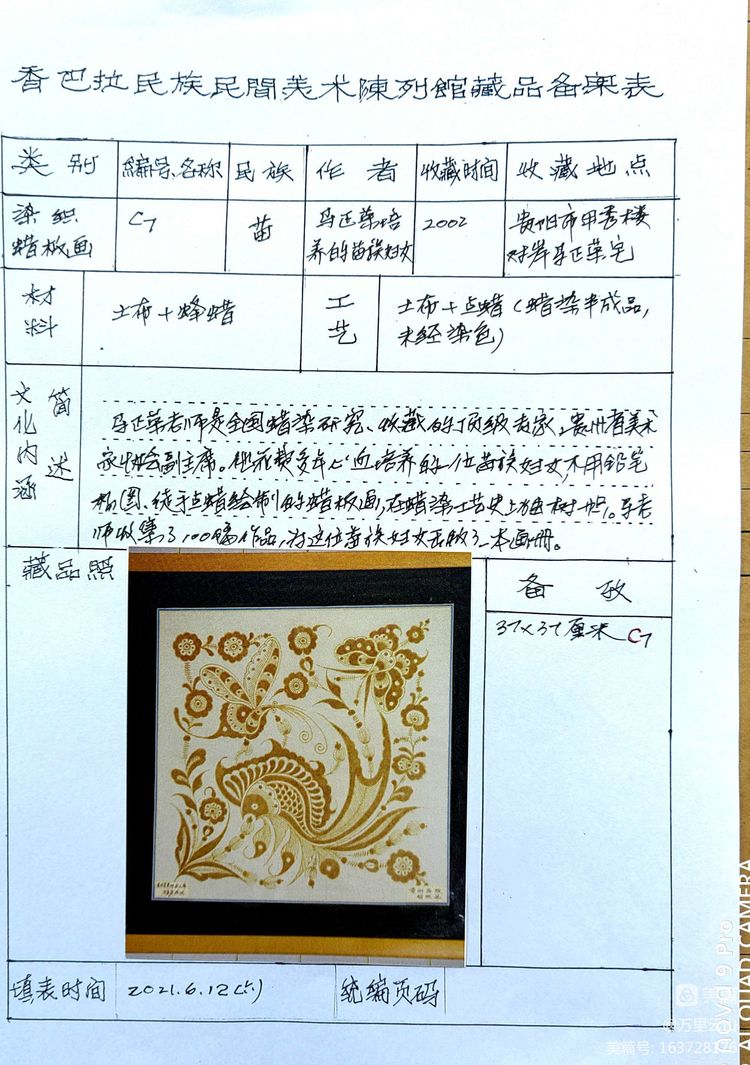 香巴拉民族民間美术陳列館藏品备案表
类别 編号、名称 民族 作者 收藏时间 收藏地点
染织 C7 苗 马正荣培 2002 贵阳市甲秀楼
蜡板画 养的苗族妇女 对岸马正荣宅
材料 土布+蜂蜡 工艺 土布+点蜡(蜡染半成品,
未经染色)
文化内涵 简述
马正荣老师是全国蜡染研究、收藏的顶级专家,贵州省美术
家协会副主席。他花费多年心血培养的一位苗族妇女,不用铅笔
构图、徒手点蜡绘制的蜡板画,在蜡染工艺史上独树一帜。马老
师收集了100幅作品,为这位苗族妇女出版了一本画册。
藏品照 备考
37×37厘米 C7
填表时间 2021.6.12(六) 统编页码
美篇号: 163728176
@万里云
vivid 9 Pro
AI QUAD CAMERA